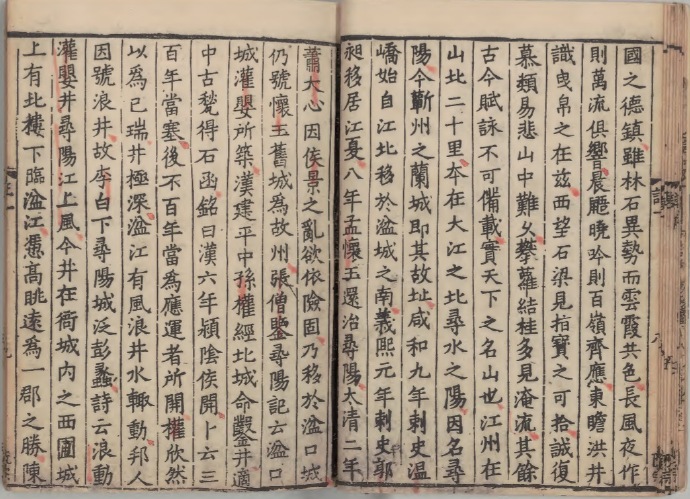 國之德鎮雖林石異勢而雲霞共色長風夜作
則萬流俱響晨鼯曉吟則百嶺齊應東瞻洪井
識曳帛之在茲西望石梁見指寶之可拾誠復
慕類易悲山中難久攀蘿結桂多見淹流其餘
古今賦詠不可備載實天下之名山也江州在
山北二十里本在大江之北尋水之陽因名尋
陽今蘄州之蘭城即其故址咸和九年刺史溫
嶠始自江北移於湓城之南義熙元年刺史郭
昶移居江夏八年孟懷玉還治尋陽太清二年
蕭大心因侯景之亂欲依險固乃移於湓口城
仍號懷玉舊城為故州張僧鑒尋陽記云湓口
城灌嬰所築漢建平中孫權經北城命鑿井適
中古甃得石函銘曰漢六年潁陰侯開卜云三
百年當塞後不百年當為應運者所開權欣然
以為已瑞井極深湓江有風浪井水輙動邦人
因號浪井故李白下尋陽城泛彭蠡詩云浪動
灌嬰井尋陽江上風今井在衙城內之西圍城
上有北樓下臨湓江憑高眺遠為一郡之勝陳